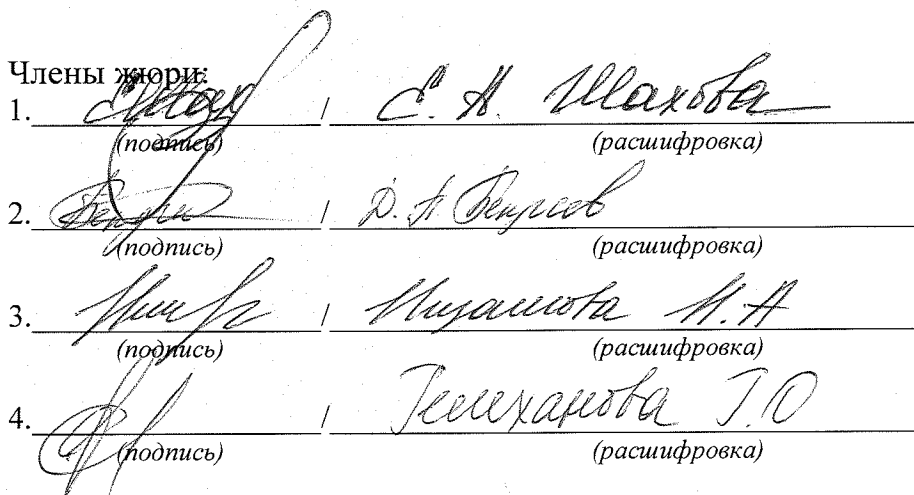 Члены жюри:
1. / С. А. Шахова
(подпись) (расшифровка)
2. / Д. П.
(подпись) (расшифровка)
3. / Низамова Н. А
(подпись) (расшифровка)
4. / Гелеханова Г. О
(подпись) (расшифровка)